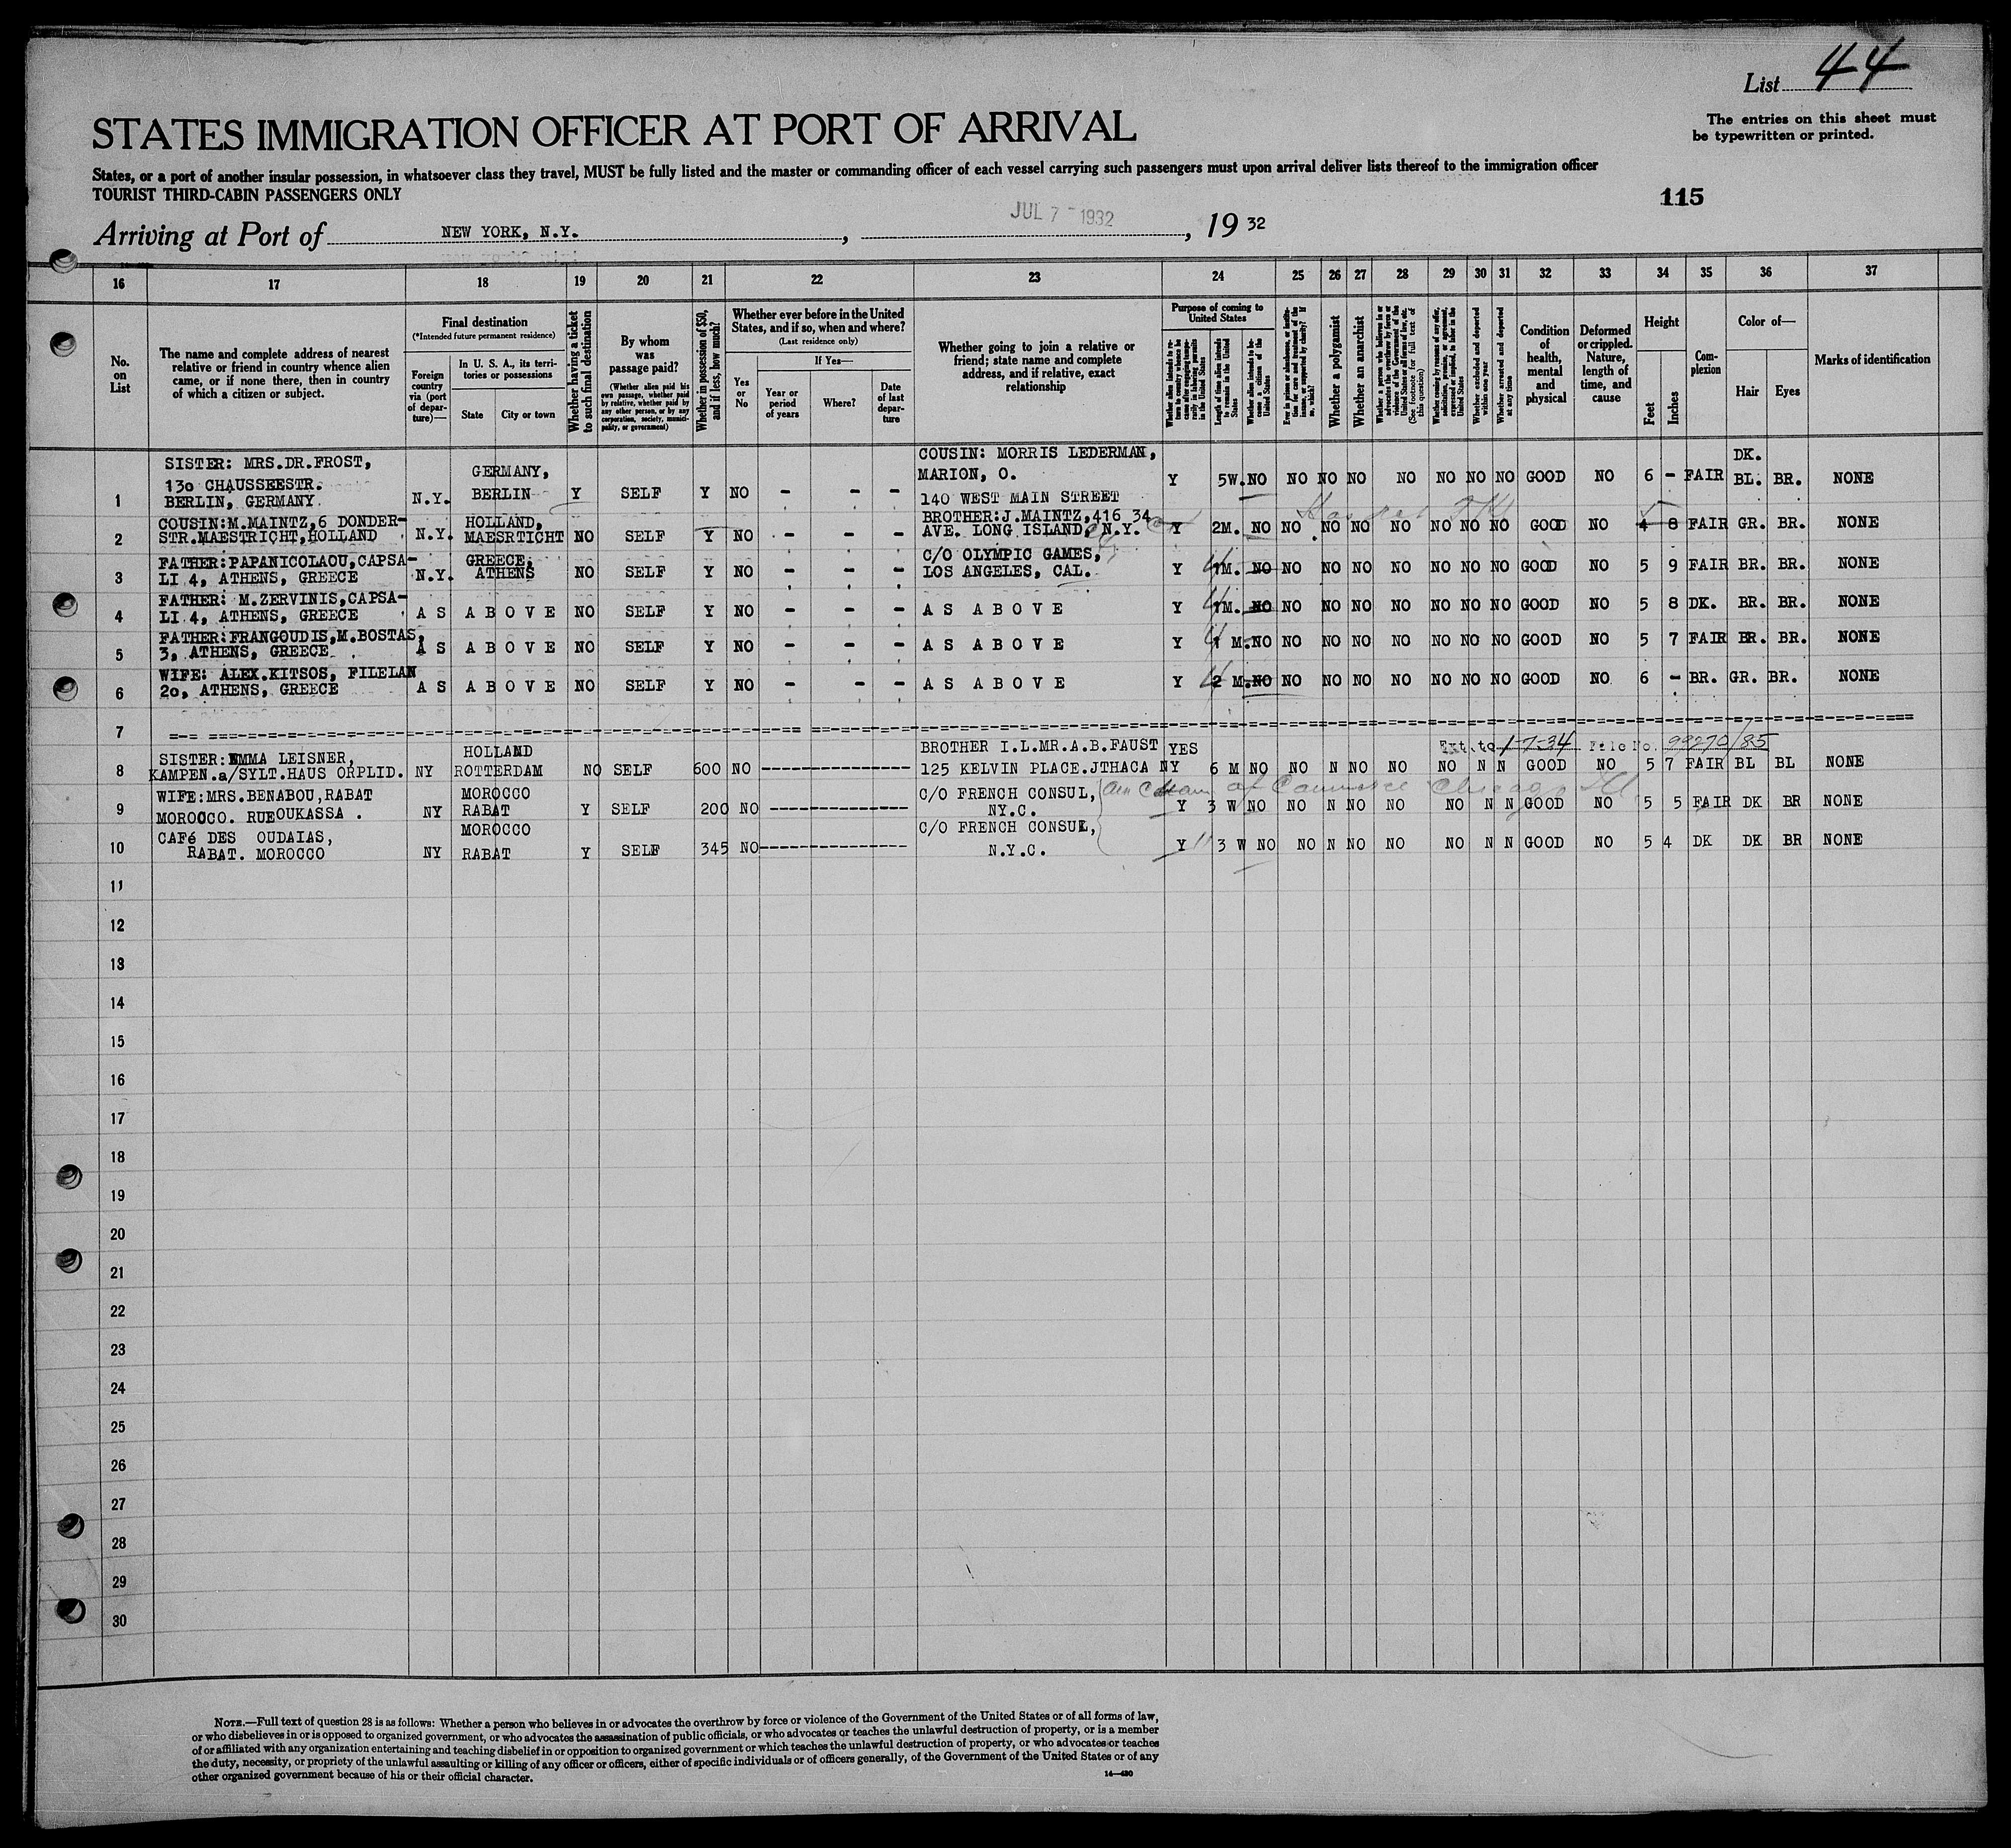 List 44
The entries on this sheet must
be typewritten or printed.
STATES IMMIGRATION OFFICER AT PORT OF ARRIVAL
States, or a port of another insular possession, in whatsoever class they travel, MUST be fully listed and the master or commanding officer of each vessel carrying such passengers must upon arrival deliver lists thereof to the immigration officer
TOURIST THIRD-CABIN PASSENGERS ONLY
115
Arriving at Port of NEW YORK, N.Y., JUL 7 - 1932, 19 32
16 17 18 19 20 21 22 23 24 25 26 27 28 29 30 31 32 33 34 35 36 37
No. on List
The name and complete address of nearest
relative or friend in country whence alien
came, or if none there, then in country
of which a citizen or subject.
Final destination
(*Intended future permanent residence)
Foreign country via (port of departure)—
In U. S. A., its territories or possessions
State City or town
Whether having a ticket to such final destination
By whom was passage paid?
(Whether alien paid his own passage, whether paid by relative, whether paid by any other person, or by any corporation, society, municipality, or government)
Whether in possession of $50, and if less, how much?
Whether ever before in the United States, and if so, when and where?
(Last residence only)
Yes or No
If Yes—
Year or period of years
Where?
Date of last departure
Whether going to join a relative or
friend; state name and complete
address, and if relative, exact
relationship
Purpose of coming to United States
Whether alien intends to return to country whence he came after engaging temporarily in laboring pursuits in the United States
Length of time alien intends to remain in the United States
Whether alien intends to become a citizen of the United States
Ever in prison or almshouse, or institution for care and treatment of the insane, or supported by charity? If so, which?
Whether a polygamist
Whether an anarchist
Whether a person who believes in or advocates the overthrow by force or violence of the Government of the United States or all forms of law, etc. (See footnote for full text of this question)
Whether coming by reasons of any offer, solicitation, promise, or agreement, expressed or implied, to labor in the United States
Whether excluded and deported within one year
Whether arrested and deported at any time
Condition of health, mental and physical
Deformed or crippled. Nature, length of time, and cause
Height
Feet Inches
Complexion
Color of—
Hair Eyes
Marks of identification
1 SISTER: MRS.DR.FROST, 13o CHAUSSEESTR. BERLIN, GERMANY. N.Y. GERMANY, BERLIN Y SELF Y NO - - - COUSIN: MORRIS LEDERMAN, MARION, O. 140 WEST MAIN STREET Y 5W. NO NO NO NO NO NO NO NO GOOD NO 6 - FAIR DK. BL. BR. NONE
2 COUSIN:M.MAINTZ,6 DONDER-STR.MAESTRICHT,HOLLAND N.Y. HOLLAND, MAESRTICHT NO SELF Y NO - - - BROTHER:J.MAINTZ,416 34 AVE. LONG ISLAND, N.Y. Y 2M. NO NO NO NO NO NO NO NO GOOD NO 4 8 FAIR GR. BR. NONE
3 FATHER:PAPANICOLAOU,CAPSA-LI 4, ATHENS, GREECE N.Y. GREECE, ATHENS NO SELF Y NO - - - C/O OLYMPIC GAMES, LOS ANGELES, CAL. Y 1M. NO NO NO NO NO NO NO NO GOOD NO 5 9 FAIR BR. BR. NONE
4 FATHER: M.ZERVINIS,CAPSA-LI 4, ATHENS, GREECE A S A B O V E NO SELF Y NO - - - A S A B O V E Y 1M. NO NO NO NO NO NO NO NO GOOD NO 5 8 DK. BR. BR. NONE
5 FATHER:FRANGOUDIS,M.BOSTAS, 3, ATHENS, GREECE A S A B O V E NO SELF Y NO - - - A S A B O V E Y 1 M. NO NO NO NO NO NO NO NO GOOD NO 5 7 FAIR BR. BR. NONE
6 WIFE: ALEX.KITSOS, FILELAN 2o, ATHENS, GREECE A S A B O V E NO SELF Y NO - - - A S A B O V E Y 2 M. NO NO NO NO NO NO NO NO GOOD NO 6 - BR. GR. BR. NONE
7
Ext. to 1-7-34 File No. 99270/85
8 SISTER: EMMA LEISNER, KAMPEN.a/SYLT.HAUS ORPLID. NY HOLLAND ROTTERDAM NO SELF 600 NO BROTHER I.L.MR.A.B.FAUST 125 KELVIN PLACE.JTHACA NY YES 6 M NO NO N NO NO NO N N GOOD NO 5 7 FAIR BL BL NONE
Am Cham of Commerce Chicago Ill
9 WIFE:MRS.BENABOU,RABAT MOROCCO. RUEOUKASSA . NY MOROCCO RABAT Y SELF 200 NO C/O FRENCH CONSUL, NY.C. Y 3 W NO NO N NO NO NO N N GOOD NO 5 5 FAIR DK BR NONE
10 CAFé DES OUDAIAS, RABAT. MOROCCO NY MOROCCO RABAT Y SELF 345 NO C/O FRENCH CONSUL, N.Y.C. Y 3 W NO NO N NO NO NO N N GOOD NO 5 4 DK DK BR NONE
11
12
13
14
15
16
17
18
19
20
21
22
23
24
25
26
27
28
29
30
NOTE.—Full text of question 28 is as follows: Whether a person who believes in or advocates the overthrow by force or violence of the Government of the United States or of all forms of law,
or who disbelieves in or is opposed to organized government, or who advocates the assassination of public officials, or who advocates or teaches the unlawful destruction of property, or is a member
of or affiliated with any organization entertaining and teaching disbelief in or opposition to organized government or which teaches the unlawful destruction of property, or who advocates or teaches
the duty, necessity, or propriety of the unlawful assaulting or killing of any officer or officers, either of specific individuals or of officers generally, of the Government of the United States or of any
other organized government because of his or their official character.
14—430